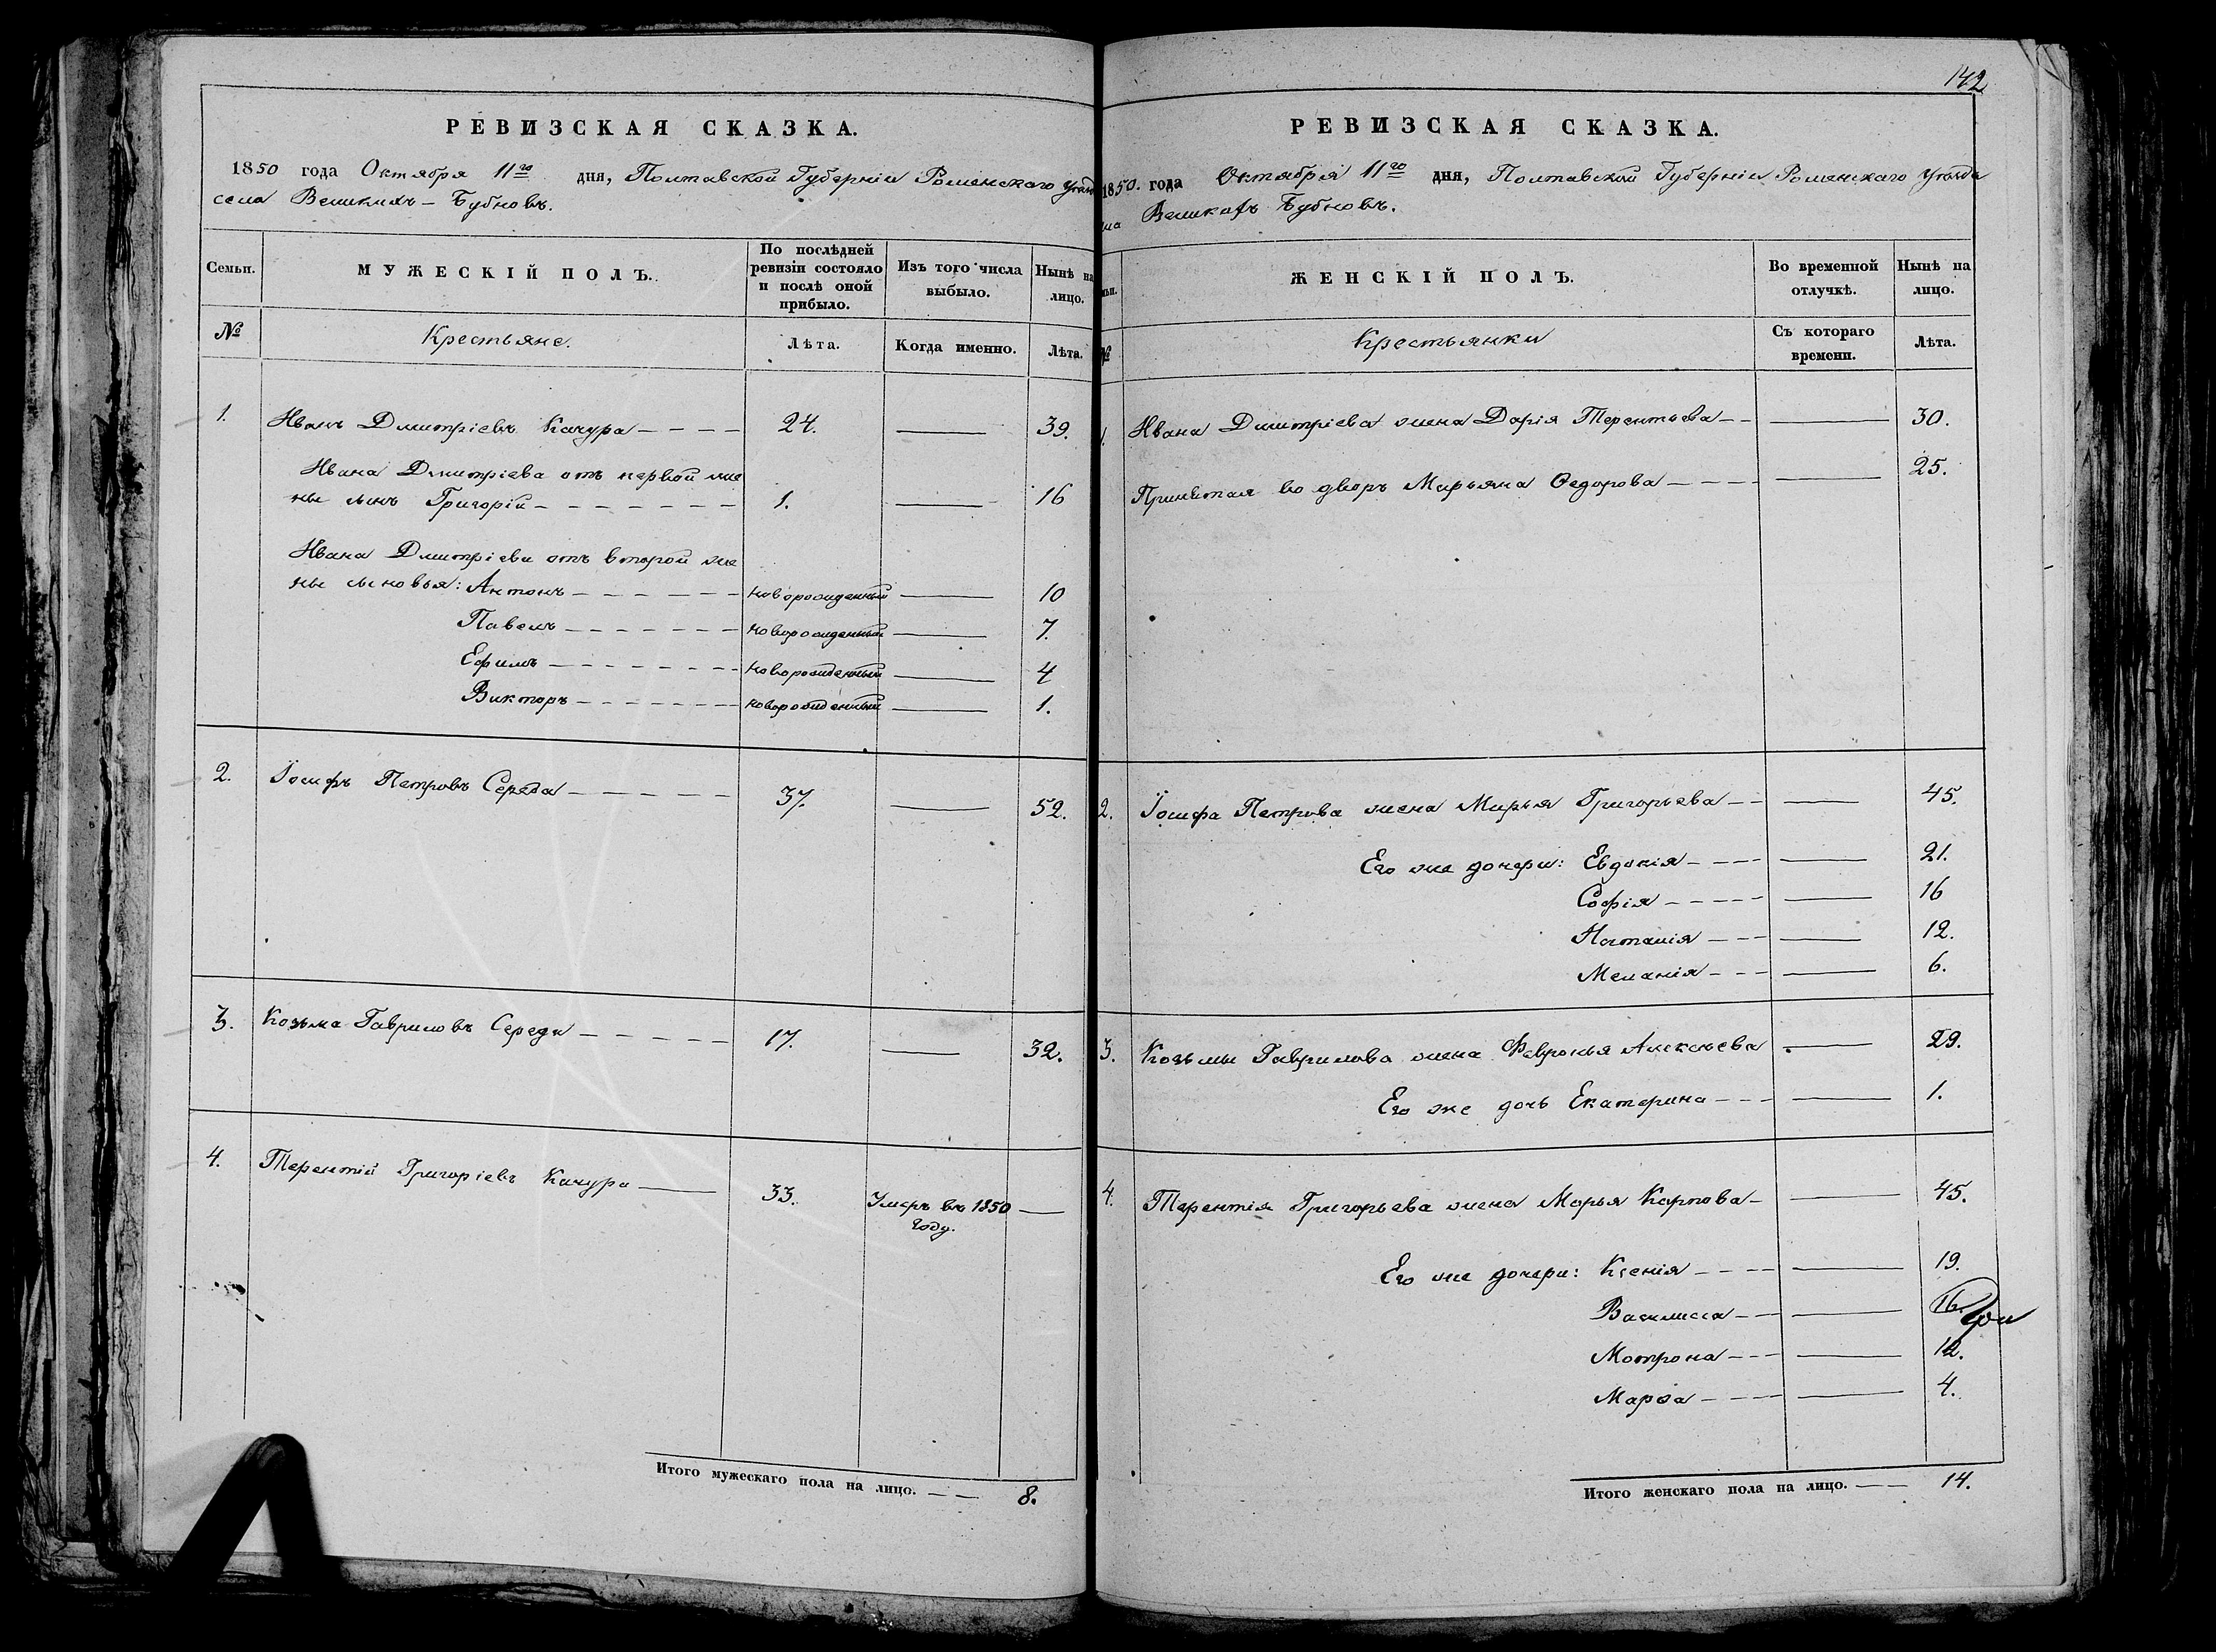 РЕВИЗСКАЯ СКАЗКА.
1850 года Октября 11го дня, Полтавской Губерніи Роменскаго Уѣзда
села Великихъ-Бубновъ.
Семьи. МУЖЕСКІЙ ПОЛЪ. По послѣдней ревизіи состояло и послѣ оной прибыло. Изъ того числа выбыло. Нынѣ на лицо.
№ Крестьяне. Лѣта. Когда именно. Лѣта.
1. Иванъ Дмитріевъ Качура 24. 39.
Ивана Дмитріева отъ первой же
ны сынъ Григорій 1. 16
Ивана Дмитріева отъ второй же
ны сыновья: Антонъ новорожденный 10
Павелъ новорожденный 7.
Ефимъ новорожденный 4
Викторъ новорожденный 1.
2. Іосифъ Петровъ Середа 37. 52.
3. Козьма Гавриловъ Середа 17. 32.
4. Терентій Григоріевъ Качура 33. Умеръ въ 1850
году.
Итого мужескаго пола на лицо. 8.
142
РЕВИЗСКАЯ СКАЗКА.
1850. года Октября 11го дня, Полтавской Губерніи Роменскаго Уѣзда
ла Великихъ Бубновъ.
мьи. ЖЕНСКІЙ ПОЛЪ. Во временной отлучкѣ. Нынѣ на лицо.
№ Крестьянки Съ котораго времени. Лѣта.
1. Ивана Дмитріева жена Дарія Терентьева 30.
Принятая во дворъ Марьяна Ѳедорова 25.
2. Іосифа Петрова жена Марья Григорьева 45.
Его же дочери: Евдокія 21.
Софія 16
Наталія 12.
Меланія 6.
3. Козьмы Гаврилова жена Февронья Алексѣева 29.
Его же дочь Екатерина 1.
4. Терентія Григорьева жена Марья Карпова 45.
Его же дочери: Ксенія 19.
Василиса 16.
Мотрона 12.
Марѳа 4.
Итого женскаго пола на лицо. 14.